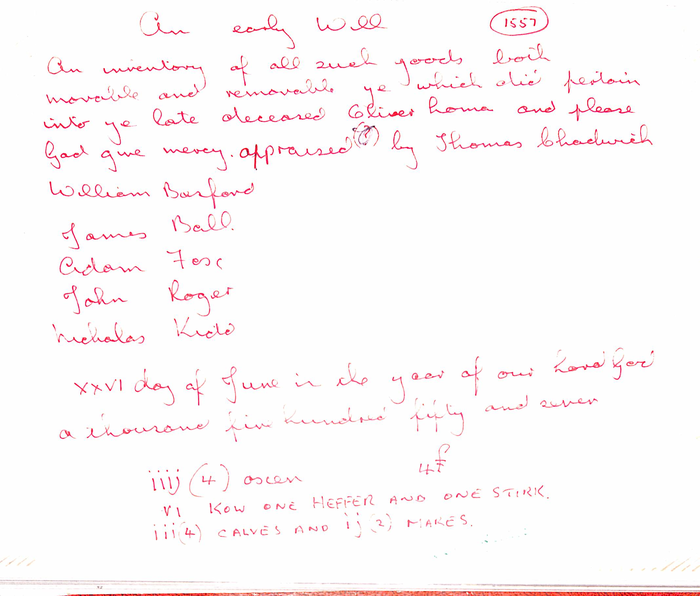 An early Will 1557
An inventory of all such goods both
movable and removable ye which did pertain
into ye late deceased Oliver homa and please
God give mercy. appraised (?) by Thomas Chadwich
William Basford
James Ball.
Adam Fox
John Roger
Nicholas Kidd
XXVI day of June in the year of our Lord God
a thousand five hundred fifty and seven
iiij (4) oxen 4
VI KOW ONE HEFFER AND ONE STIRK.
iii(4) CALVES AND ij (2) MAKES.